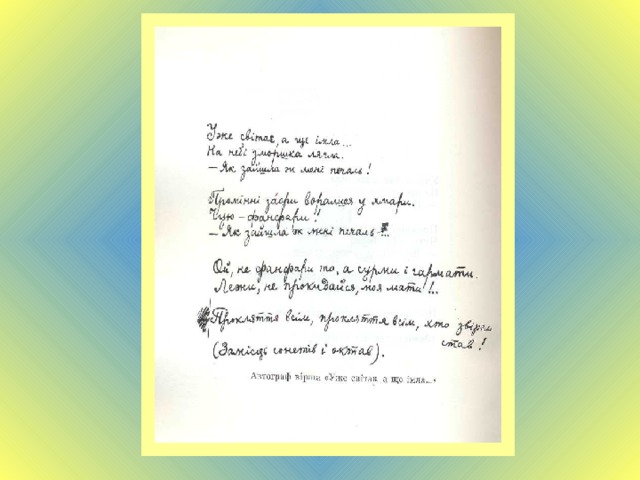 Уже світає, а ще імла...
На небі зморшка лягла.
– Як зайшла ж мені печаль!
Промінні
у хмари.
Чую – фанфари!!
– Як зайшла ж мені печаль
Ой, не фанфари то, а сурми і гармати.
Лежи, не прокидайся, моя мати!..
Прокляття всім, прокляття всім, хто звіром
став!
(Замісць сонетів і октав).
Автограф вірша «Уже світає, а що імла...»